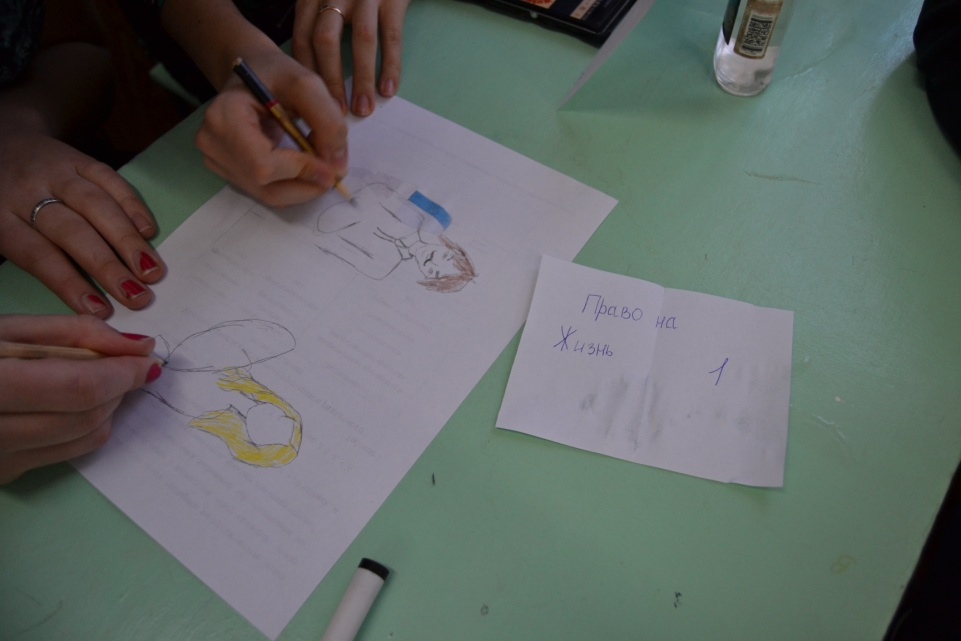 Право на
Жизнь
1